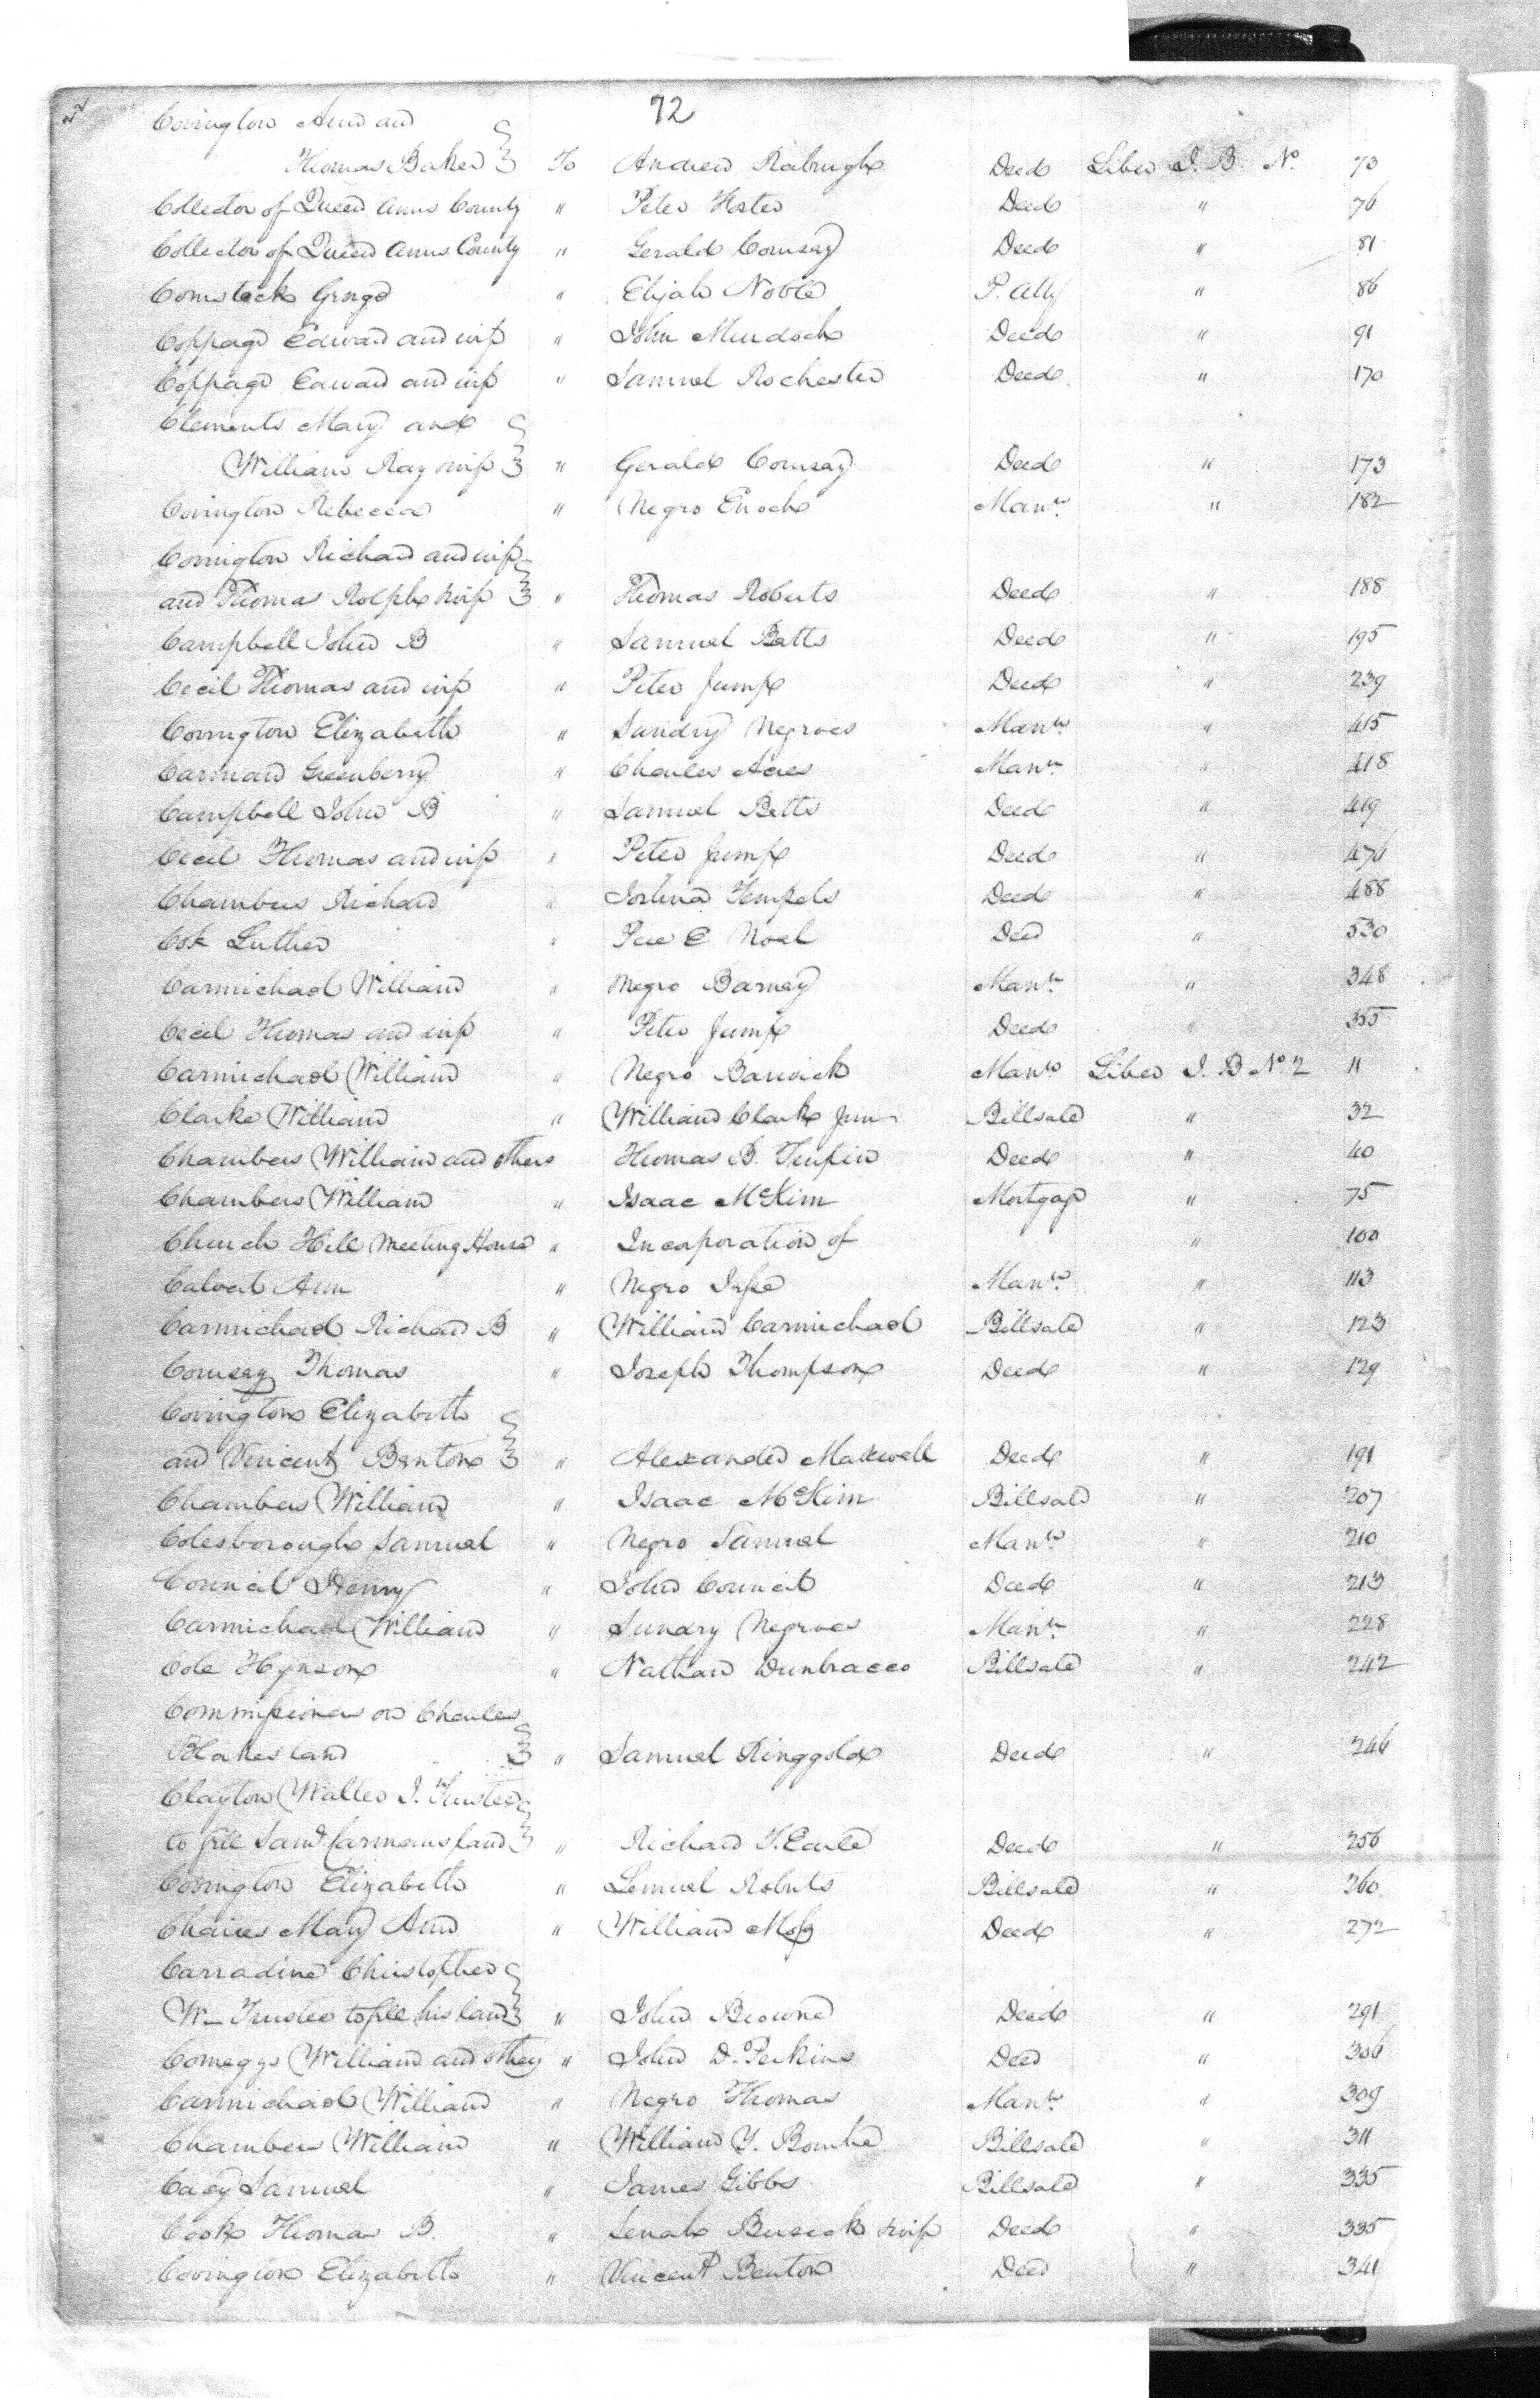 72
Covington Ann and
Thomas Baker } To Andrew Deed Liber I. B. No. 73
Collector of Queen Anns County " Peter Deed " 76
Collector of Queen Anns County " Gerald Coursey Deed " 81
Comstock George " Elijah Noble P. Atty " 86
Coppage Edward and wife " John Murdoch Deed " 91
Coppage Edward and wife " Samuel Rochester Deed " 170
Clements Mary and
William Ray & wife } " Gerald Coursey Deed " 173
Covington Rebecca " Negro Enoch Mann. " 182
Covington Richard and wife
and Thomas Rolph & wife } " Thomas Roberts Deed " 188
Campbell John B " Samuel Betts Deed " 195
Cecil Thomas and wife " Peter Jump Deed " 239
Covington Elizabeth " Sundry Negroes Mann. " 415
Carman Greenberry " Charles Acres Mann. " 418
Campbell John B " Samuel Betts Deed " 419
Cecil Thomas and wife " Peter Jump Deed " 476
Chambers Richard " Joshua Deed " 488
Cox Luther " Pere E Noel Deed " 530
Carmichael William " Negro Barney Mann. " 348
Cecil Thomas and wife " Peter Jump Deed " 355
Carmichael William " Negro Barwick Mann. Liber I. B No. 2 11
Clarke William " William Clark Junr Billsale " 32
Chambers William and others Thomas B. Deed " 40
Chambers William " Isaac McKim Mortgage " 75
Church Hill Meeting House " Incorporation of " 100
Calvert Ann " Negro Mann. " 113
Carmichael Richard B " William Carmichael Billsale " 123
Coursey Thomas " Joseph Thompson Deed " 129
Covington Elizabeth
and Vincent Benton } " Alexander Maxwell Deed " 191
Chambers William " Isaac McKim Billsale " 207
Colesborough Samuel " Negro Samuel Mann. " 210
Council Henry " John Council Deed " 213
Carmichael William " Sundry Negroes Mann. " 228
Cole Hynson " Nathan Dunbracco Billsale " 242
Commissioners on Charles
Blakes land } " Samuel Ringgold Deed " 246
Clayton Walter J. Trustee
to sell Saml. Carmans land } " Richard T. Earle Deed " 256
Covington Elizabeth " Lemuel Roberts Billsale " 260
Chaires Mary Ann " William Deed " 272
Carradine Christopher
Wm Trustee to sell his land } " John Browne Deed " 291
Comegys William and others " John D. Perkins Deed " 306
Carmichael William " Negro Thomas Mann. " 309
Chambers William " William Y. Bourke Billsale " 311
Cacy Samuel " James Gibbs Billsale " 335
Cook Thomas B. " Senah Busick & wife Deed " 335
Covington Elizabeth " Vincent Benton Deed " 341